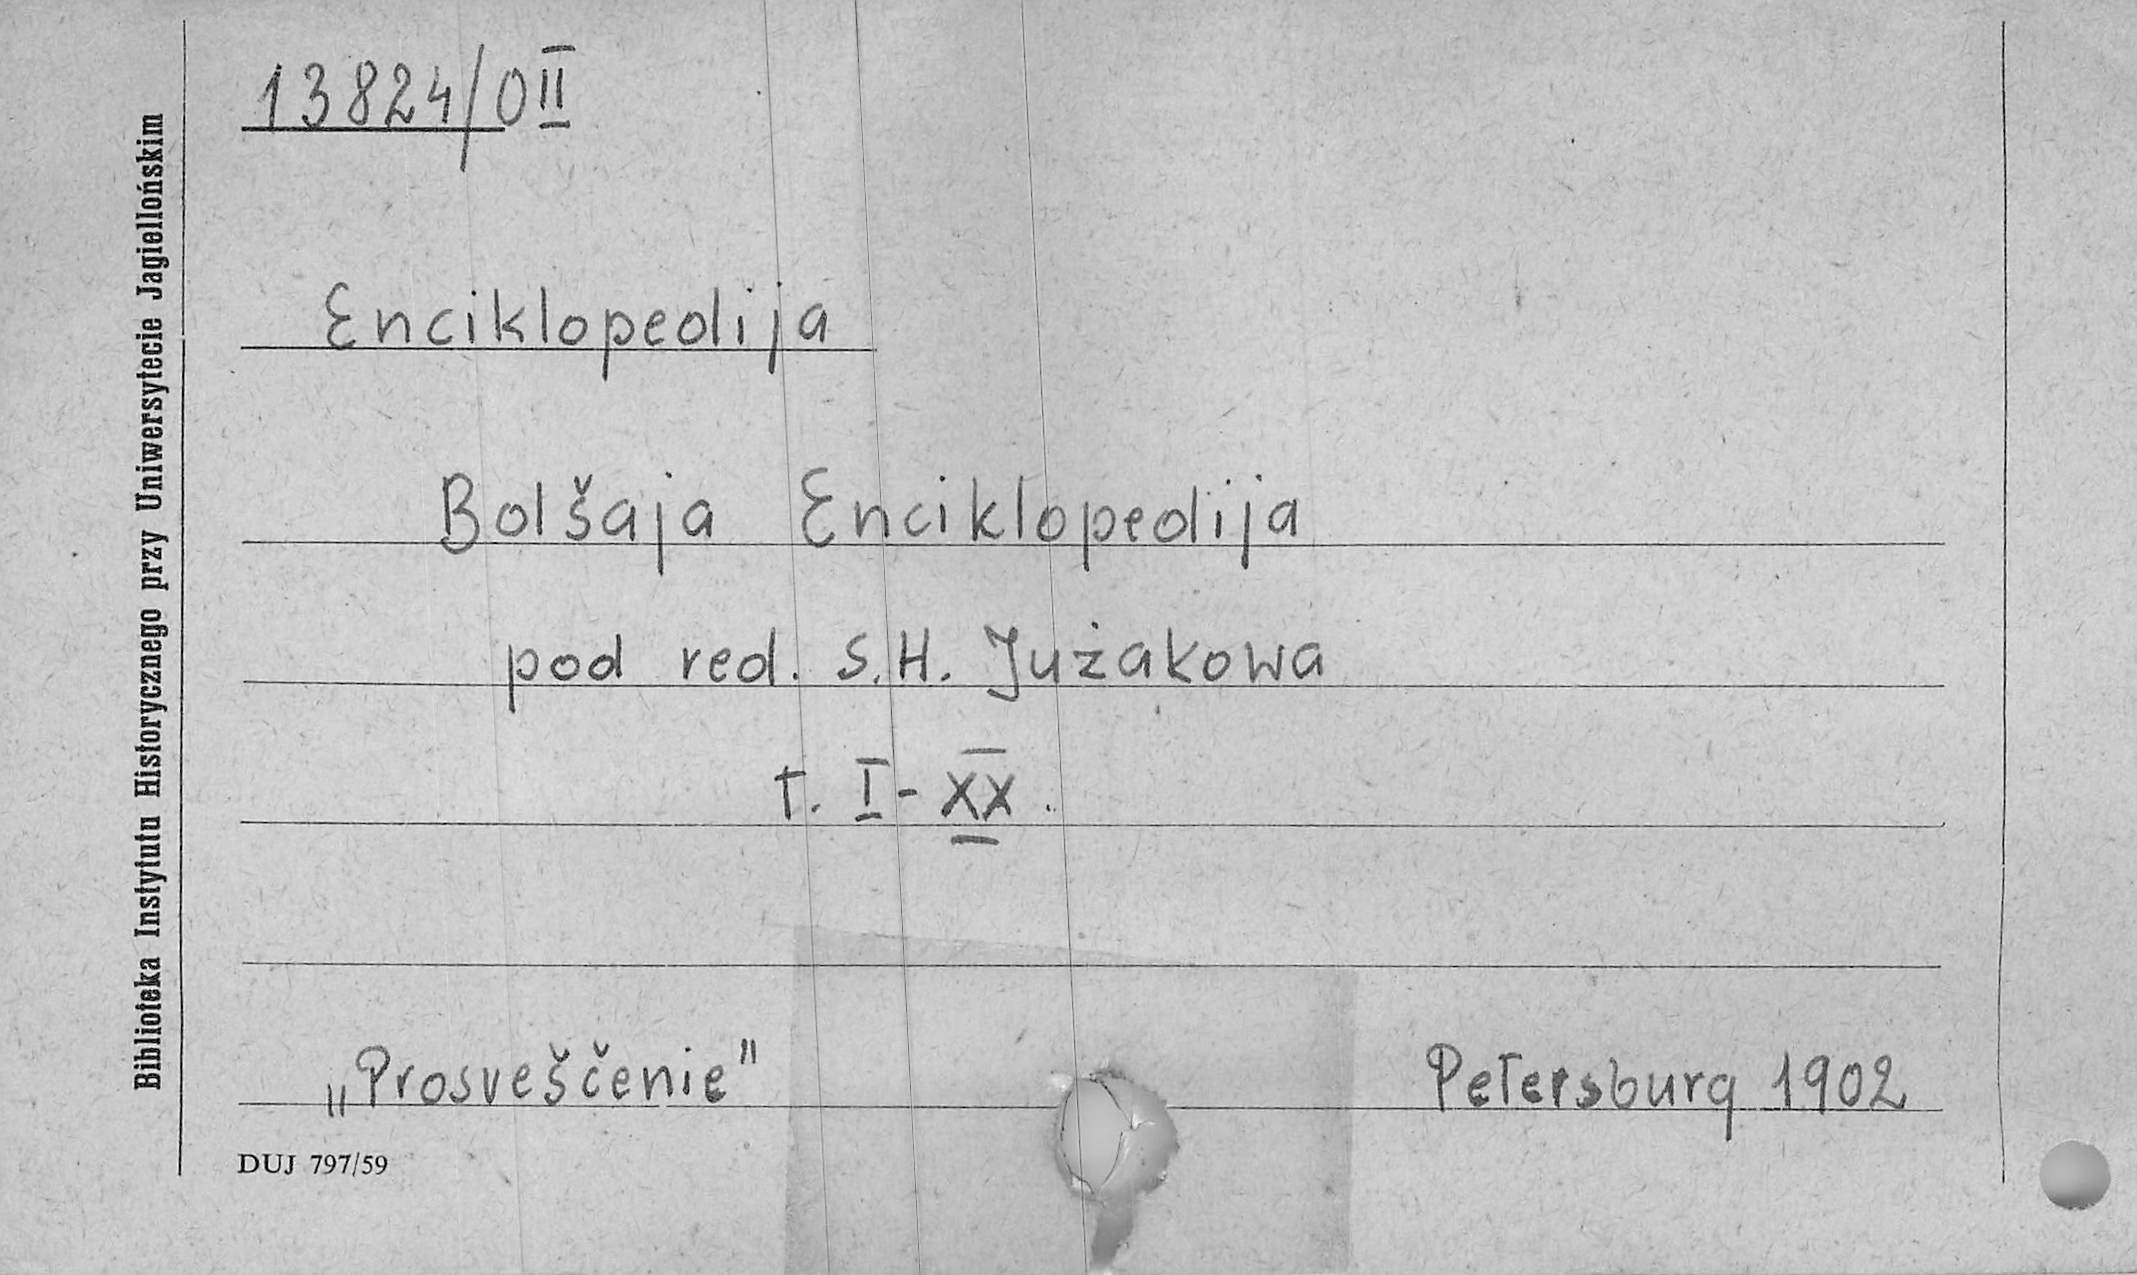 13824/0II
Biblioteka Instytutu Historycznego przy Uniwersytecie Jagiellońskim
Enciklopedija
Bolšaja Enciklopedija
pod red. S.H. Jużakowa
t. I - XX.
„Prosveščenie" Petersburg 1902
DUJ 797/59